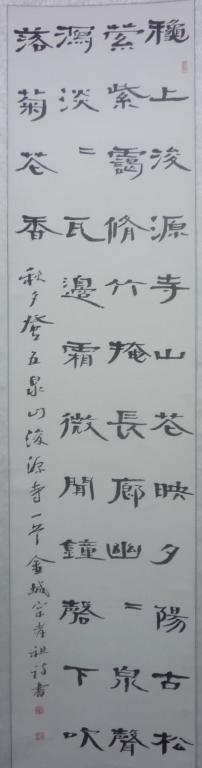 穐上浚源寺山花映夕陽古松
縈紫靄脩竹掩長廊幽=泉聲
瀉淡=瓦邊霜微聞鐘磬下吹
落菊花香
秋夕登五泉山浚源寺一首金城宗孝祖詩書